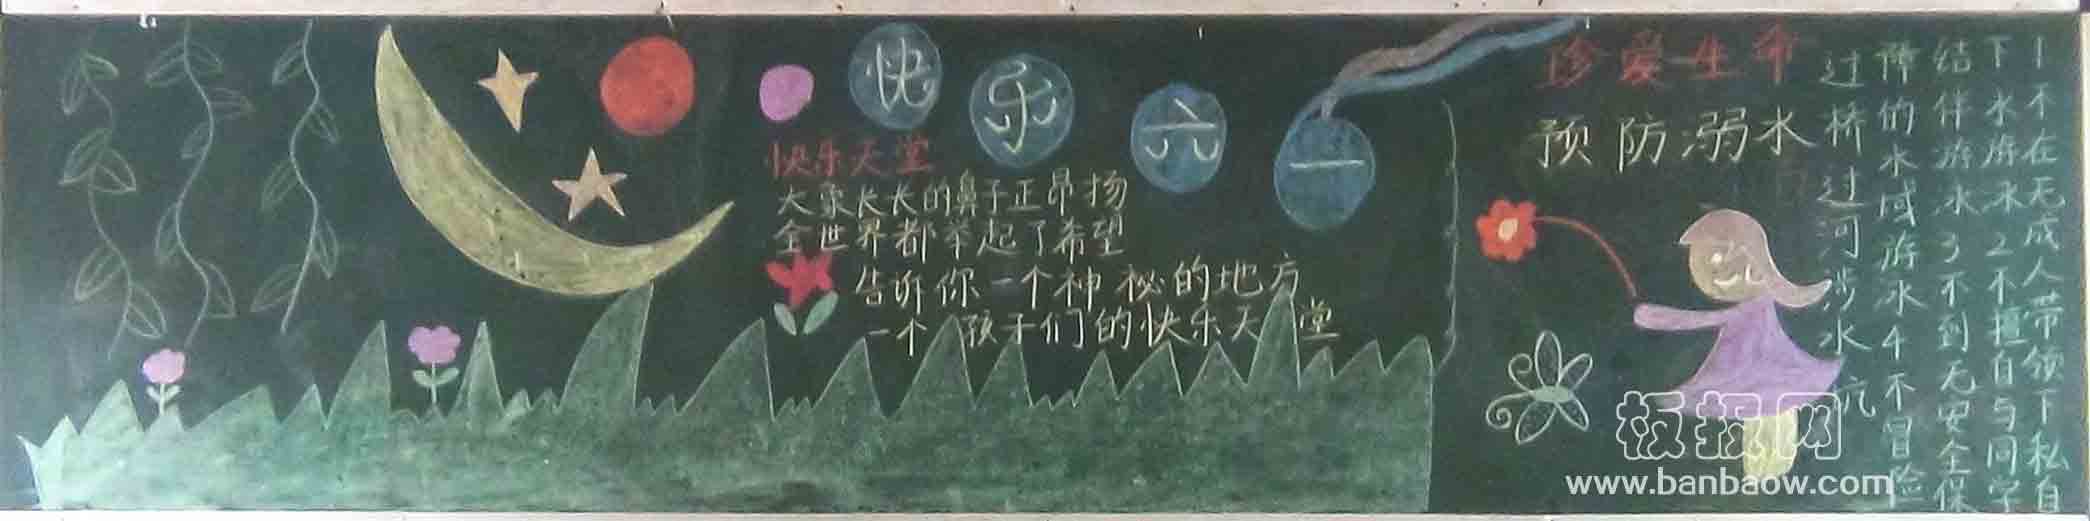 快乐六一
快乐天堂
大象长长的鼻子正昂扬
全世界都举起了希望
告诉你一个神秘的地方
一个孩子们的快乐天堂
珍爱生命
预防溺水
1不在无成人带领下私自
下水游泳2不擅自与同学
结伴游泳3不到无安全保
障的水域游泳4不冒险
过桥过河涉水坑
板报网
www.banbaow.com